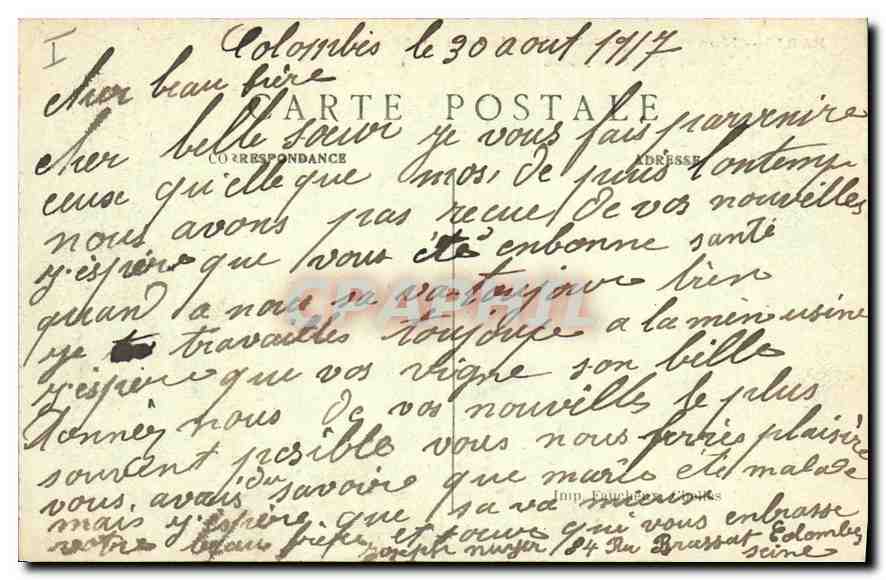 I
Colombes le 30 aout 1917
cher beau frère
CARTE POSTALE
cher belle sœur je vous fais parvenire
CORRESPONDANCE
ADRESSE
ceux qu'elle que mos, de puis lontemp
nous avons pas recue de vos nouvelles
j'espère que vous été enbonne santé
quand a nou sa va toujour bien
je travailles toujour a la mem usine
j'espère que vos vigne son belle
donnéz nous de vos nouvelles le plus
souvent posible vous nous ferriés plaisire
vous, avais du savoire que marie été malade
Imp. Faucheux Chelles
mais j'espère que sa va mieu
votre beau frère et toure qui vous enbrasse
Joseph 84 Ru Brassat Colombes
seine
CPAPHIL